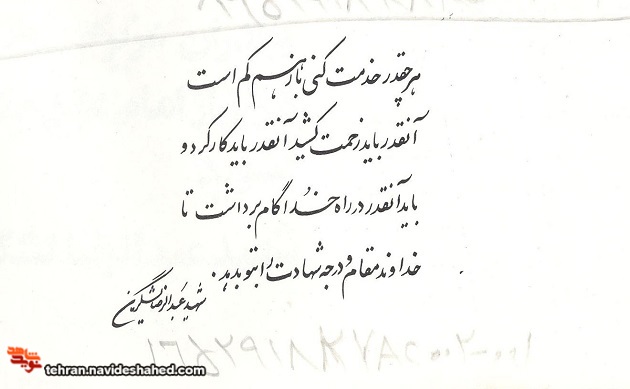 هر چقدر خدمت کنی باز هم کم است
آنقدر باید زحمت کشید آنقدر باید کار کرد و
باید آنقدر در راه خدا گام برداشت تا
خداوند مقام و درجه شهادت را بتو بدهد.
شهید عبدالرضا
tehran.navideshahed.com